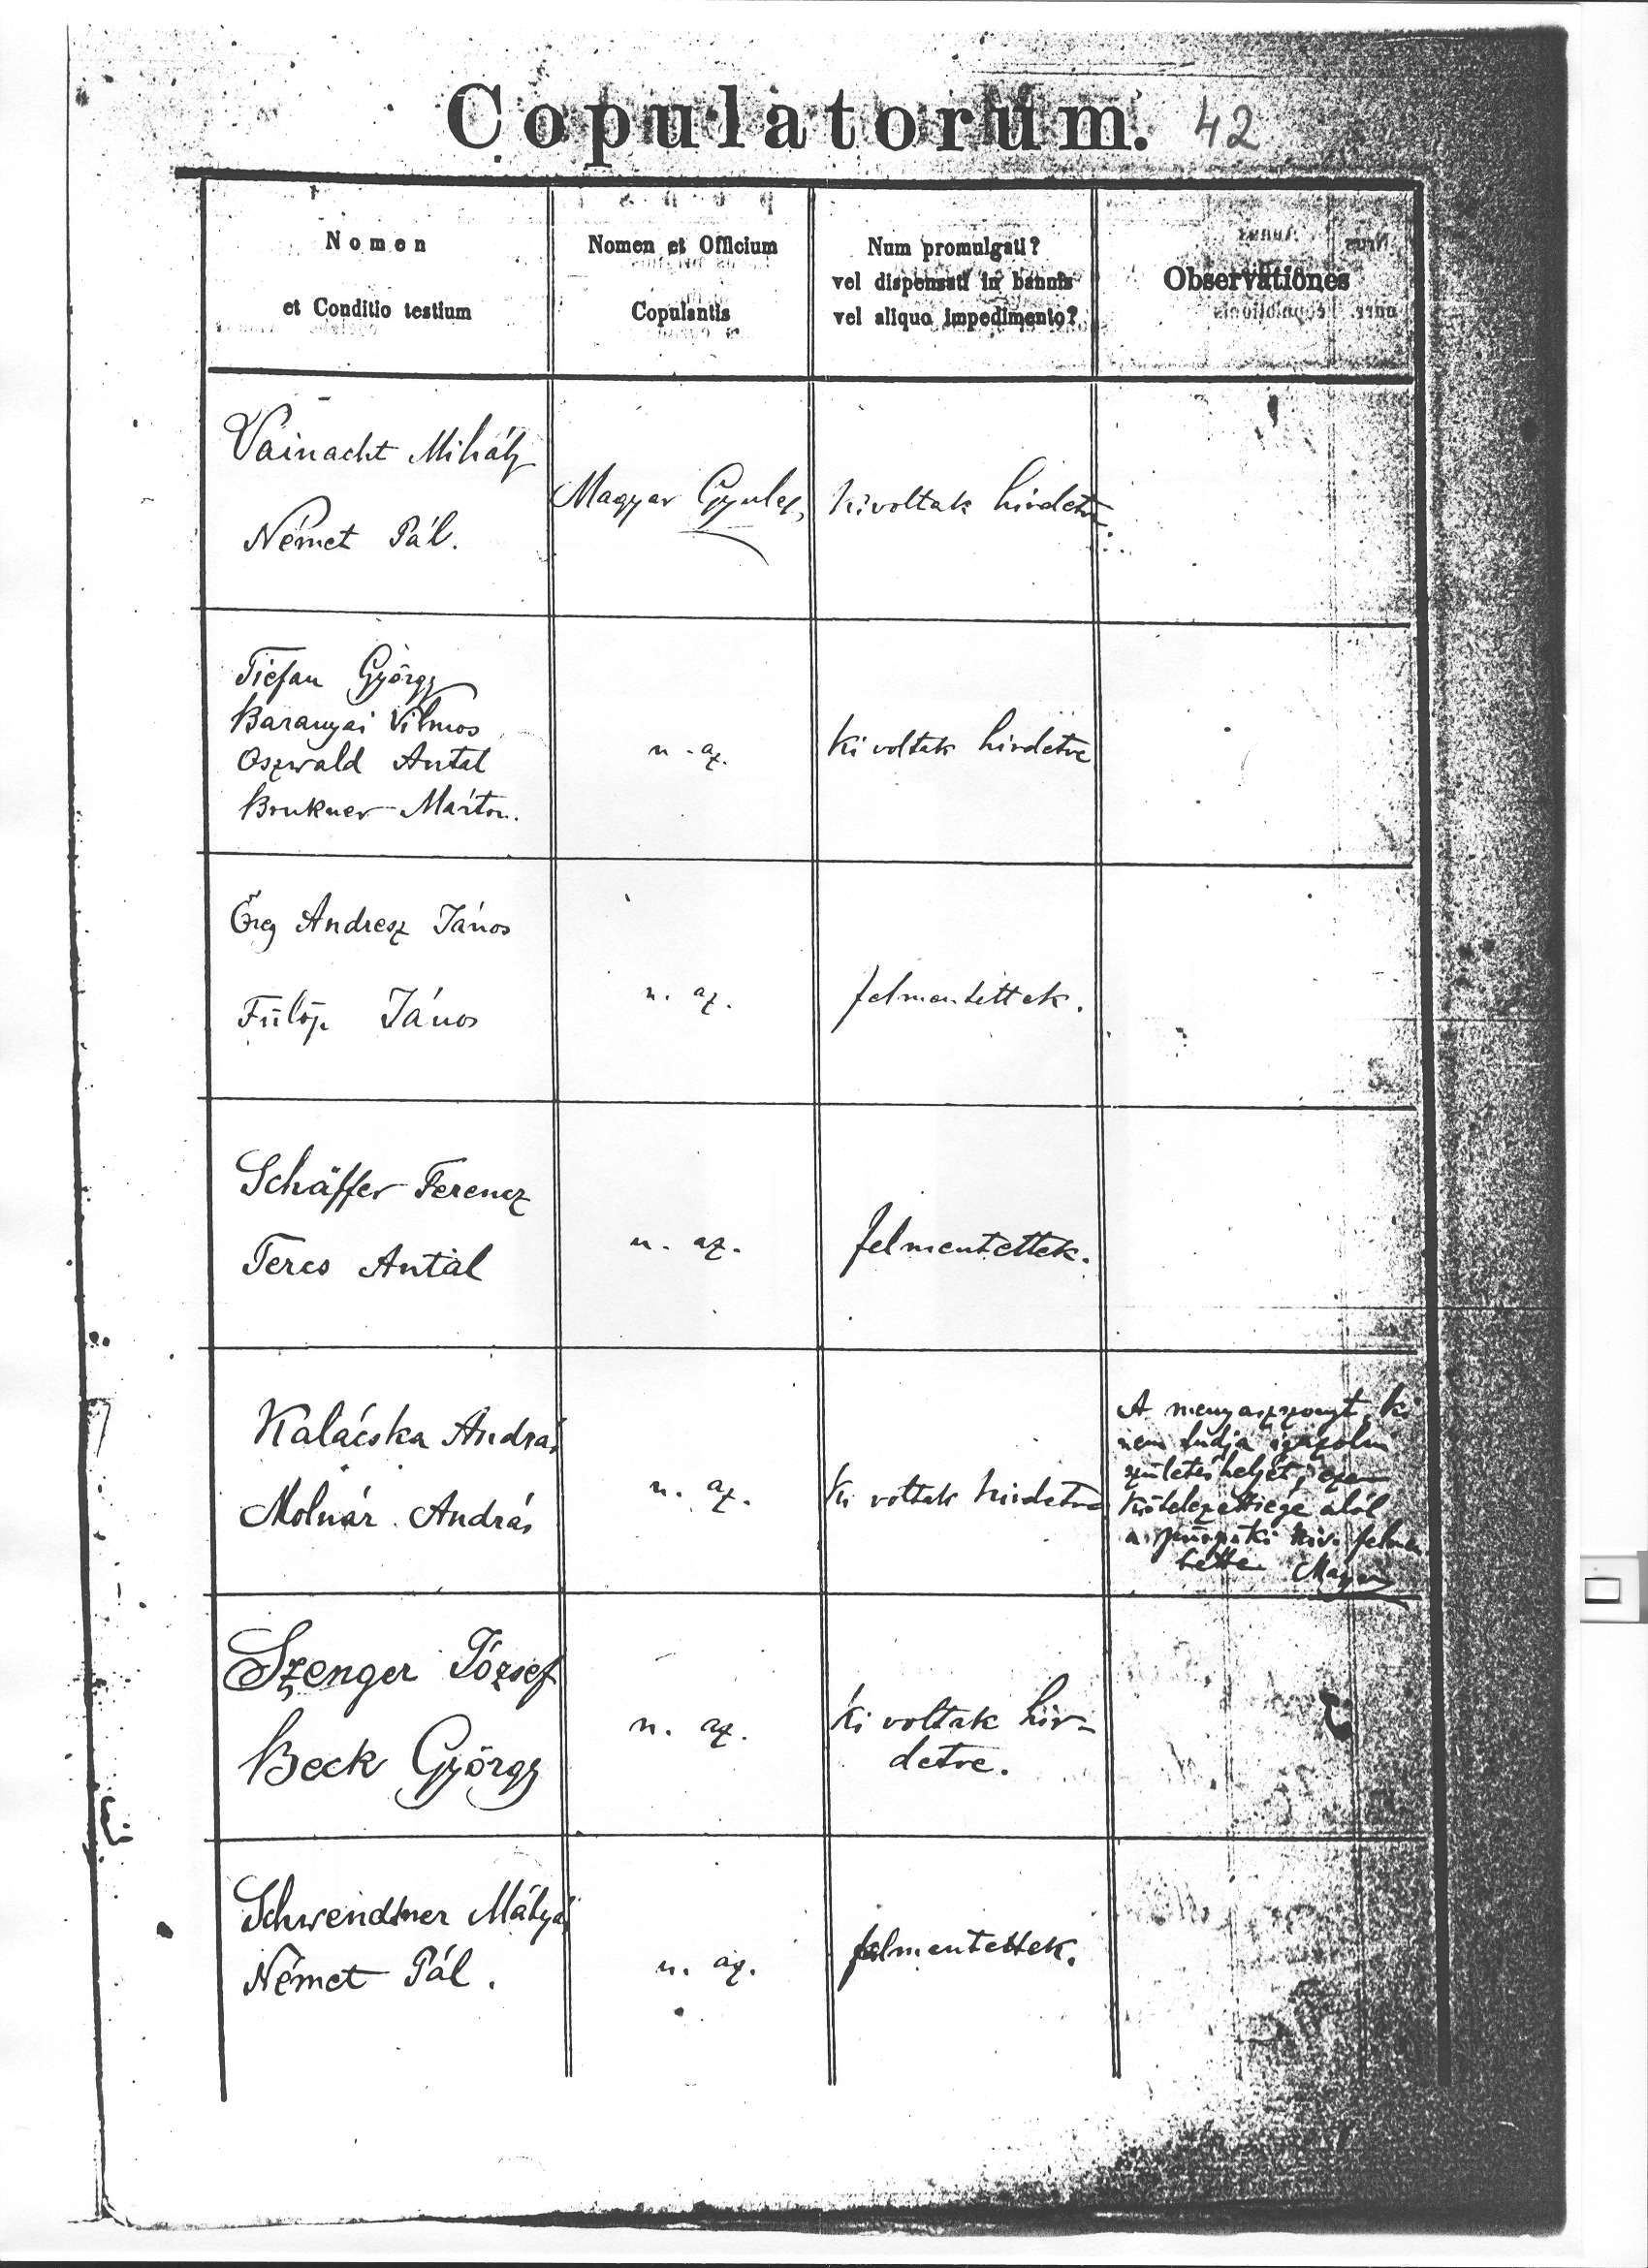 Copulatorum. 42
Nomen
et Conditio testium
Nomen et Officium
Copulantis
Num promulgati?
vel dispensati in bannis
vel aliquo impedimento?
Observationes
Vainacht Mihály
Német Pál.
Magyar Gyula
Kivoltak hirdetve
Tiefau György
Baranyai Vilmos
Oszwald Antal
Brukner Márton.
u. az.
Ki voltak hirdetve
Öreg Andresz János
Fülöp János
u. az.
felmentettek.
Schäffer Ferencz
Teres Antal
u. az.
felmentettek.
Kalácska András
Molnár András
u. az.
Ki voltak hirdetve
A menyasszonyt, ki
nem tudja igazolni
születés helyét, ezen
kötelezettsége alól
a püspöki hiv. felmen
tette Magyar
Szenger József
Beck György
u. az.
Ki voltak hir-
detve.
Schwendtner Mátyás
Német Pál.
u. az.
felmentettek.